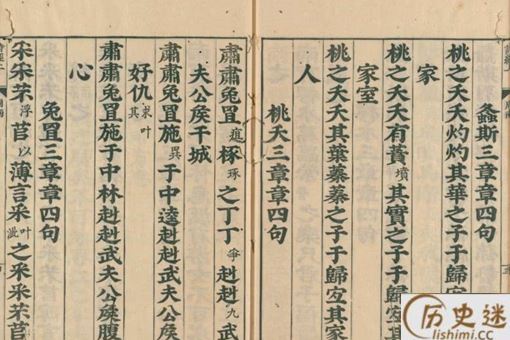 螽斯三章章四句
桃之夭夭灼灼其華之子于歸
家
桃之夭夭有蕡墳其實之子于歸宜其
家室
桃之夭夭其葉蓁蓁之子于歸宜其家
人
桃夭三章章四句
肅肅兔罝椓琢之丁丁爭赳赳九武
夫公侯干城
肅肅兔罝施異于中逵赳赳武夫公侯
好仇叶求其
肅肅兔罝施于中林赳赳武夫公侯腹
心
兔罝三章章四句
采采芣浮苢以薄言采叶泚之采采芣苢
历史迷
lishimi.cc